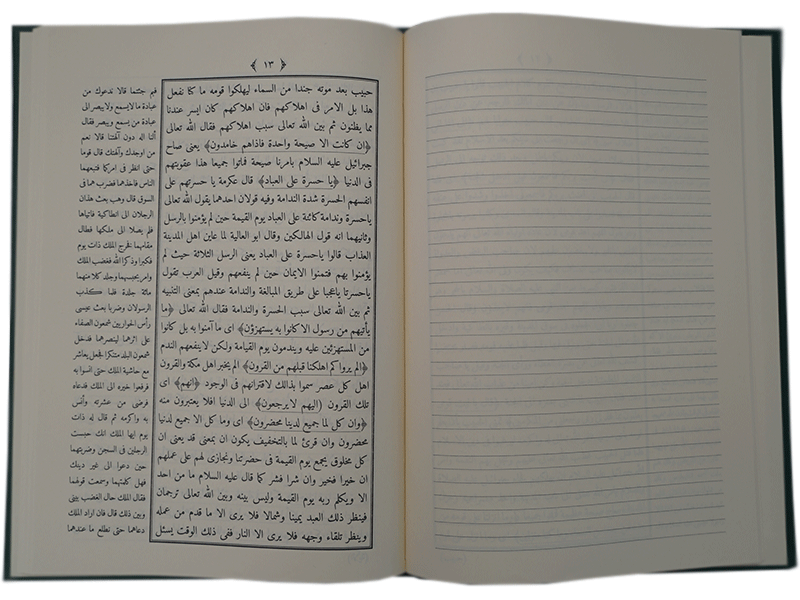 ﴿ ١٣ ﴾
حبيب بعد موته جندا من السماء ليهلكوا قومه ما كنا نفعل
هذا بل الامر فى اهلاكهم فان اهلاكهم كان ايسر عندنا
مما يظنون ثم بين الله تعالى سبب اهلاكهم فقال الله تعالى
﴿ان كانت الا صيحة واحدة فاذاهم خامدون﴾ يعنى صاح
جبرائيل عليه السلام بامرنا صيحة فماتوا جميعا هذا عقوبتهم
فى الدنيا ﴿يا حسرة على العباد﴾ قال عكرمة يا حسرتهم على
انفسهم الحسرة شدة الندامة وفيه قولان احدهما يقول الله تعالى
ياحسرة وندامة كائنة على العباد يوم القيمة حين لم يؤمنوا بالرسل
وثانيهما انه قول الهالكين وقال ابو العالية لما عاين اهل المدينة
العذاب قالوا ياحسرة على العباد يعنى الرسل الثلاثة حيث لم
يؤمنوا بهم فتمنوا الايمان حين لم ينفعهم وقيل العرب تقول
ياحسرتا ياعجبا على طريق المبالغة والندامة عندهم بمعنى التنبيه
ثم بين الله تعالى سبب الحسرة والندامة فقال الله تعالى ﴿ما
يأتيهم من رسول الا كانوا به يستهزؤن﴾ اى ما آمنوا به بل كانوا
من المستهزئين عليه ويندمون يوم القيامة ولكن لاينفعهم الندم
﴿الم يروا كم اهلكنا قبلهم من القرون﴾ الم يخبر اهل مكة والقرون
اهل كل عصر سموا بذالك لاقترانهم فى الوجود ﴿انهم﴾ اى
تلك القرون ﴿اليهم لايرجعون﴾ الى الدنيا افلا يعتبرون منه
﴿وان كل لما جميع لدينا محضرون﴾ اى وما كل الا جميع لدنيا
محضرون وان قرئ لما بالتخفيف يكون ان بمعنى قد يعنى ان
كل مخلوق يجمع يوم القيمة فى حضرتنا ونجازى لهم على عملهم
ان خيرا فخير وان شرا فشر كما قال عليه السلام ما من احد
الا ويكلم ربه يوم القيمة وليس بينه وبين الله تعالى ترجمان
فينظر ذلك العبد يمينا وشمالا فلا يرى الا ما قدم من عمله
وينظر تلقاء وجهه فلا يرى الا النار ففى ذلك الوقت يسئل
فيم جئتما قالا ندعوك من
عبادة ما لايسمع ولايبصر الى
عبادة من يسمع ويبصر فقال
ألنا اله دون آلهتنا قالا نعم
من اوجدك وآلهتك قال قوما
حتى انظر فى امركما فتبعهما
الناس فاخذهما فضرب هما فى
السوق قال وهب بعث هذان
الرجلان الى انطاكية فاتياها
فلم يصلا الى ملكها فطال
مقامهما فخرج الملك ذات يوم
فكبرا وذكرا الله فغضب الملك
وامر بحبسهما وجلد كلا منهما
مائة جلدة فلما كذب
الرسولان وضربا بعث عيسى
رأس الحواريين شمعون الصفاء
على اثرهما لينصرهما فدخل
شمعون البلد متنكرا فجعل يعاشر
مع حاشية الملك حتى انسوا به
فرفعوا خبره الى الملك فدعاه
فرضى من عشرته وأنس
به واكرمه ثم قال له ذات
يوم ايها الملك انك حبست
الرجلين فى السجن وضربتهما
حين دعوا الى غير دينك
فهل كلمتهما وسمعت قولهما
فقال الملك حال الغضب بينى
وبين ذلك قال فان اراد الملك
دعاهما حتى نطلع ما عندهما